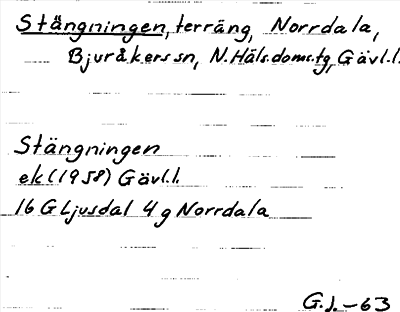 Stängningen, terräng, Norrdala,
Bjuråkers sn, N. Häls. doms.tg, Gävl.l.
Stängningen
ek (1958) Gävl.l.
16 G Ljusdal 4 g Norrdala
G.J.-63